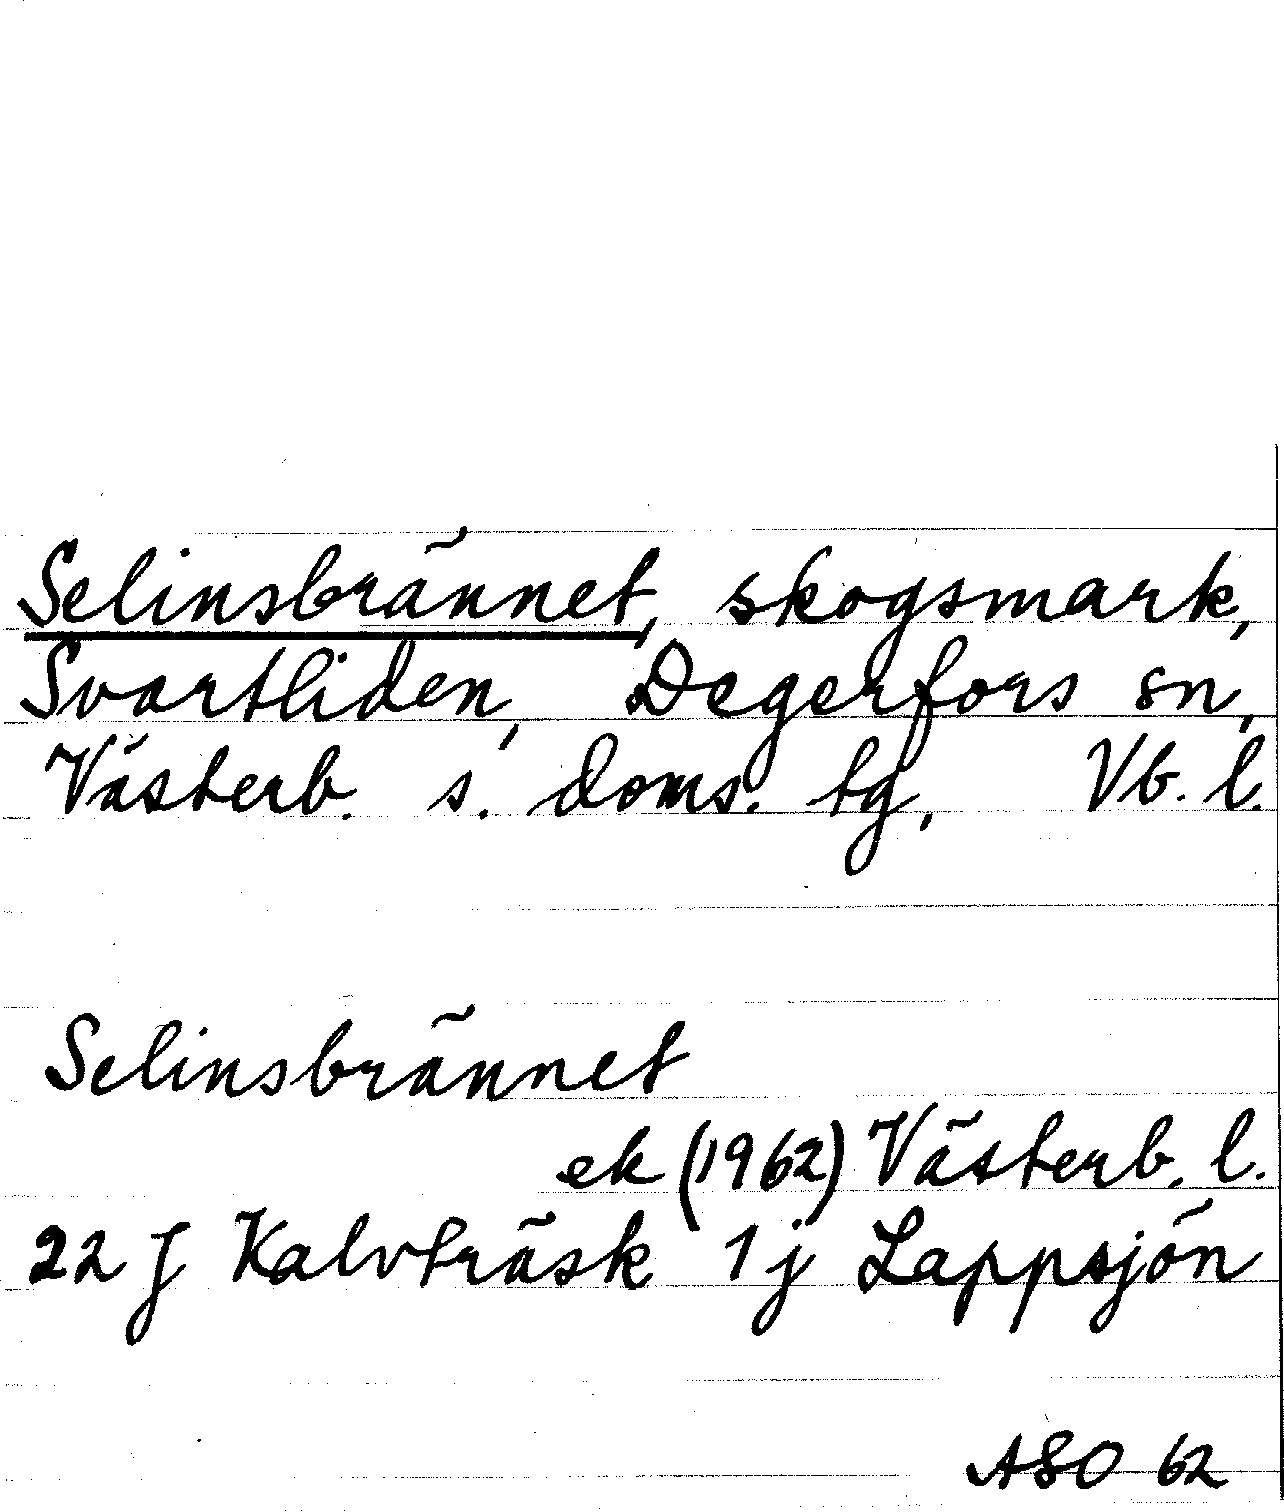 Selinsbrännet, skogsmark,
Svartliden, Degerfors sn,
Västerb. s. doms. tg, Vb. l.
Selinsbrännet
ek (1962) Västerb. l.
22 J Kalvträsk 1 j Lappsjön
ASO 62